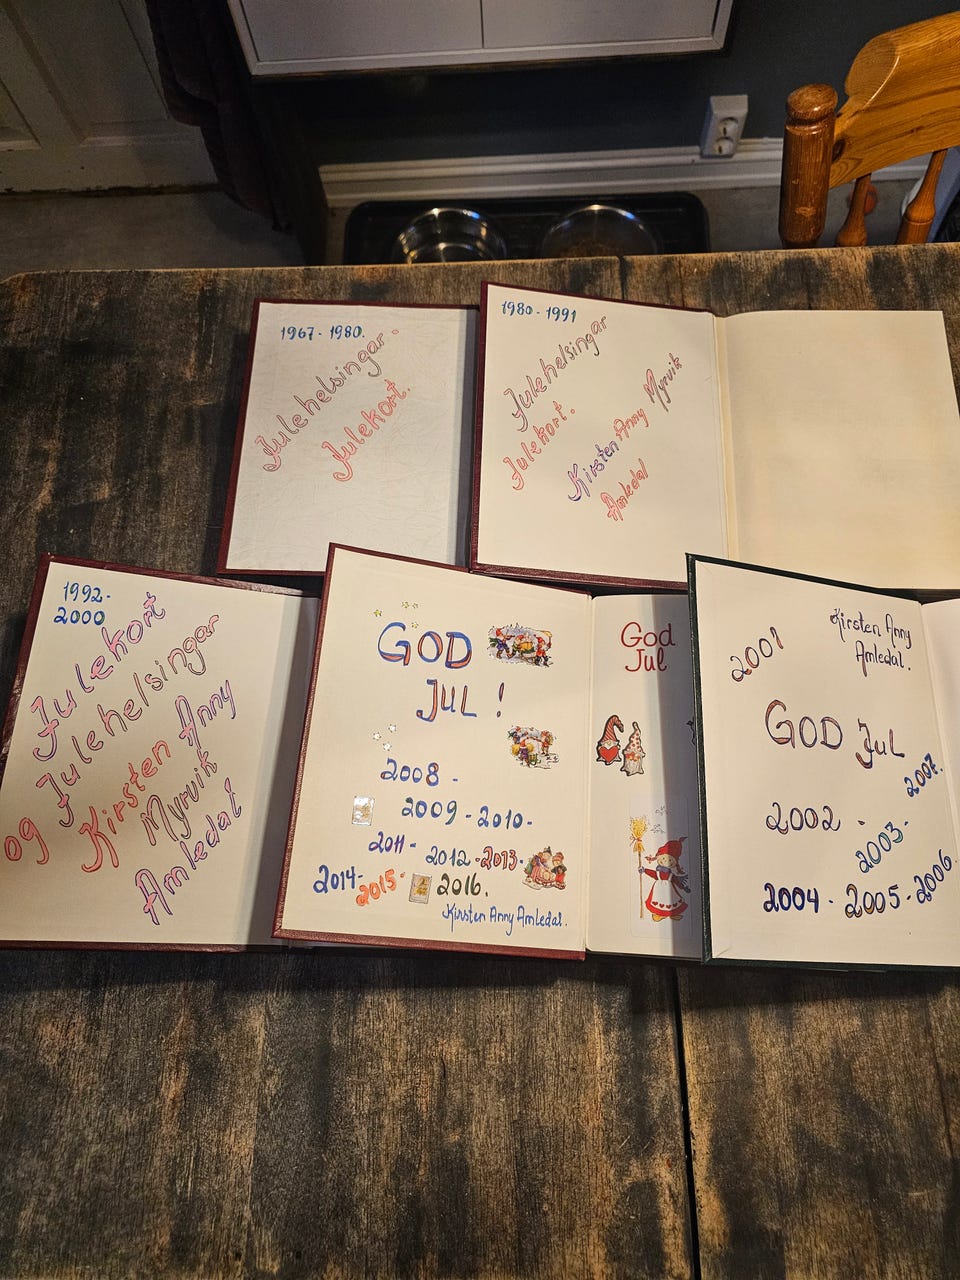 1967 - 1980.
Julehelsingar -
Julekort.
1980 - 1991
Julehelsingar
Julekort.
Kirsten Anny Myrvik
Amledal
1992-
2000
Julekort
og Julehelsingar
Kirsten Anny
Myrvik
Amledal
GOD
JUL !
2008 -
2009 - 2010 -
2011 - 2012 - 2013
2014 - 2015 - 2016.
Kirsten Anny Amledal.
God
Jul
2001
Kirsten Anny
Amledal.
GOD Jul
2002 - 2003 -
2004 - 2005 - 2006
2007.